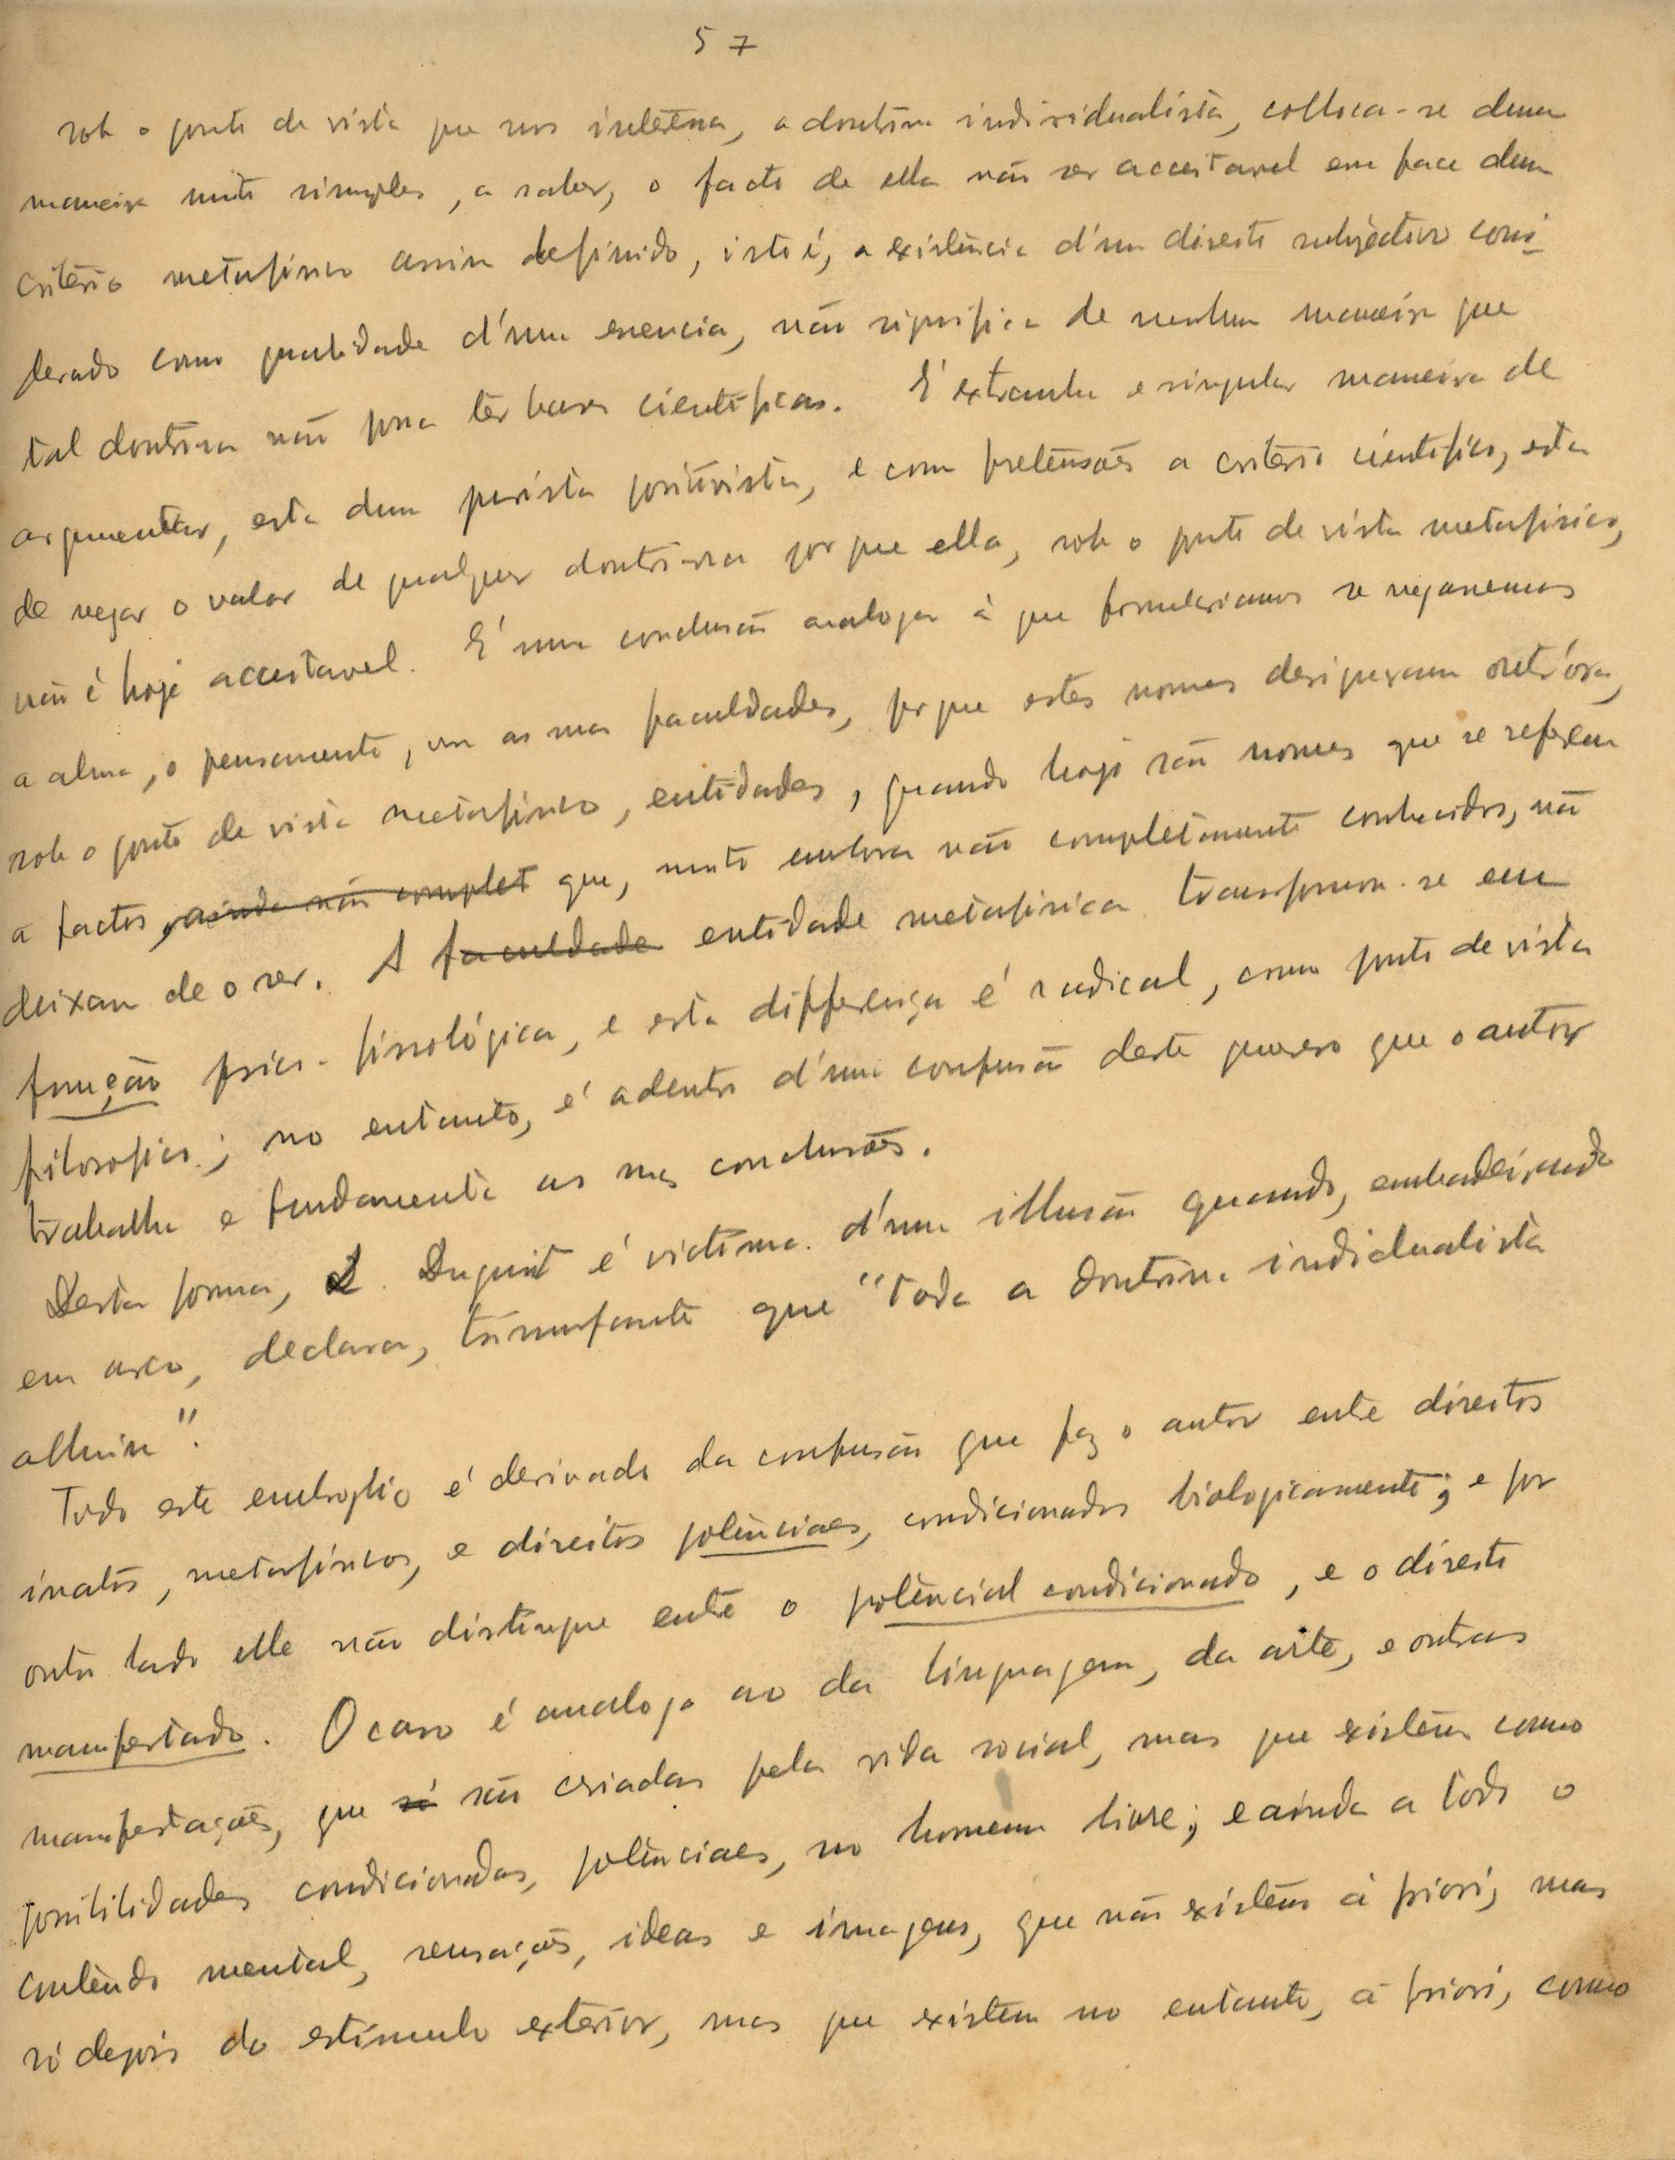 57
sob o ponto de vista que nos interéssa, a doutrina individualista, colloca-se duma
maneira muito simples, a saber, o facto de ella não ser acceitavel em face dum
critério metaphisico assim definido, isto é, a existência d'um direito subjectivo consi-
derado como qualidade d'uma essencia, não significa de nenhuma maneira que
tal doutrina não possa ter bases cientificas. É extranha e singular maneira de
argumentar, esta dum jurista positivista, e com pretensões a critério cientifico, esta
de negar o valor de qualquer doutrina por que ella, sob o ponto de vista metafisico,
não é hoje acceitavel. É uma conclusão analoga á que formulariamos se negassemos
a alma, o pensamento, ou as suas faculdades, por que estes nomes designavam outr'óra,
sob o ponto de vista metafisico, entidades, quando hoje são nomes que se referem
a factos, ainda não complet que, muito embora não completamente conhecidos, não
deixam de o ser. A faculdade entidade metafisica transforma-se em
função psico-fisiológica, e esta differença é radical, como ponto de vista
filosofico; no entanto, é adentro d'uma confusão deste genero que o autor
trabalha e fundamenta as suas conclusões.
Desta forma, L. Duguit é victima d'uma illusão quando, embandeirando
em arco, declara, triumfante que "toda a doutrina individualista
alluiu".
Todo este embroglio é derivado da confusão que faz o autor entre direitos
inatos, metafisicos, e direitos potênciaes, condicionados biologicamente; e por
outro lado elle não distingue entre o potêncial condicionado, e o direito
manifestado. O caso é analogo ao da linguagem, da arte, e outras
manifestações, que só são criadas pela vida social, mas que existem como
possibilidades condicionadas, potênciaes, no homem livre; e ainda a todo o
contêudo mental, sensações, ideas e imagens, que não existem á priori, mas
só depois do estimulo exterior, mas que existem no entanto, á priori, como